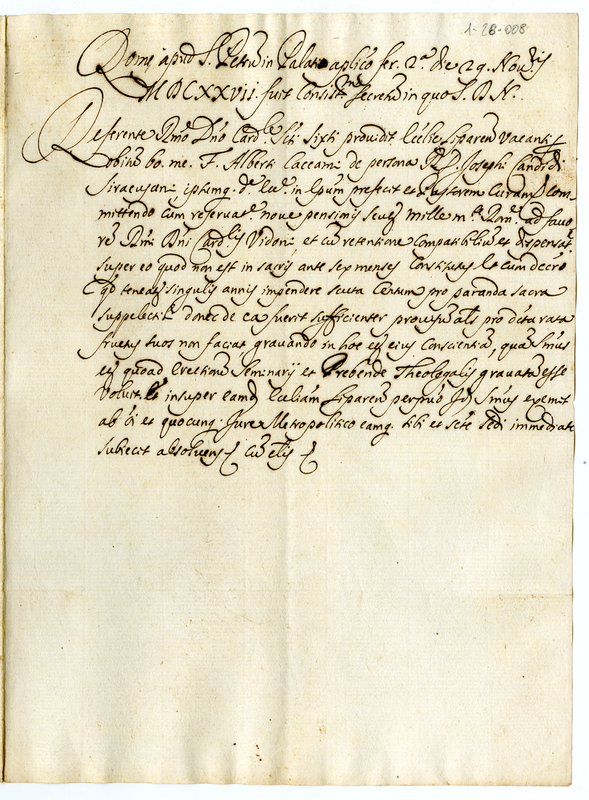 1-28-008
Romę apud S. Petrū in Palatio aplico fer. 2.ᵃ die 29. Nouris
MDCXXVII. fuit Consistm secretū in quo S. D. N.
Referente Rmo Dño Card.le Sti Sixti prouidit Ecclie Liparen Vacanti p
obitū bo. me. F. Alberti Caccami de persona R. D. Josephi Candidi
Siracusani ipsumq. d. in Epum prefecit et Pastorem Curam Com
mittendo Cum reseruat.e noue pensionis mille m.ta Rom. ad fauo
rē Rmi Dni Card.lis Vidoni et cū retentione Compatibiliū et dispensat.e
super eo quod non est in sacris ante sex menses Constitutus et cum decreo
qd singulis annis impendere scuta Centum pro paranda sacra
suppelectili donec de ea fuerit sufficienter prouisū als pro dcta rata
fructus suos non faciat grauando in hoc eius Conscientiā, quā Smus
quoad erectionē Seminarij et Prebende Theologalis grauatā esse
Voluit. insuper eamd. Eccliam Liparen perpetuo Smus exemit
ab oi et quocunq. Jure Metropolitico eamq. sibi et Sctę Sedi immediate
subiecit absoluens cū clis